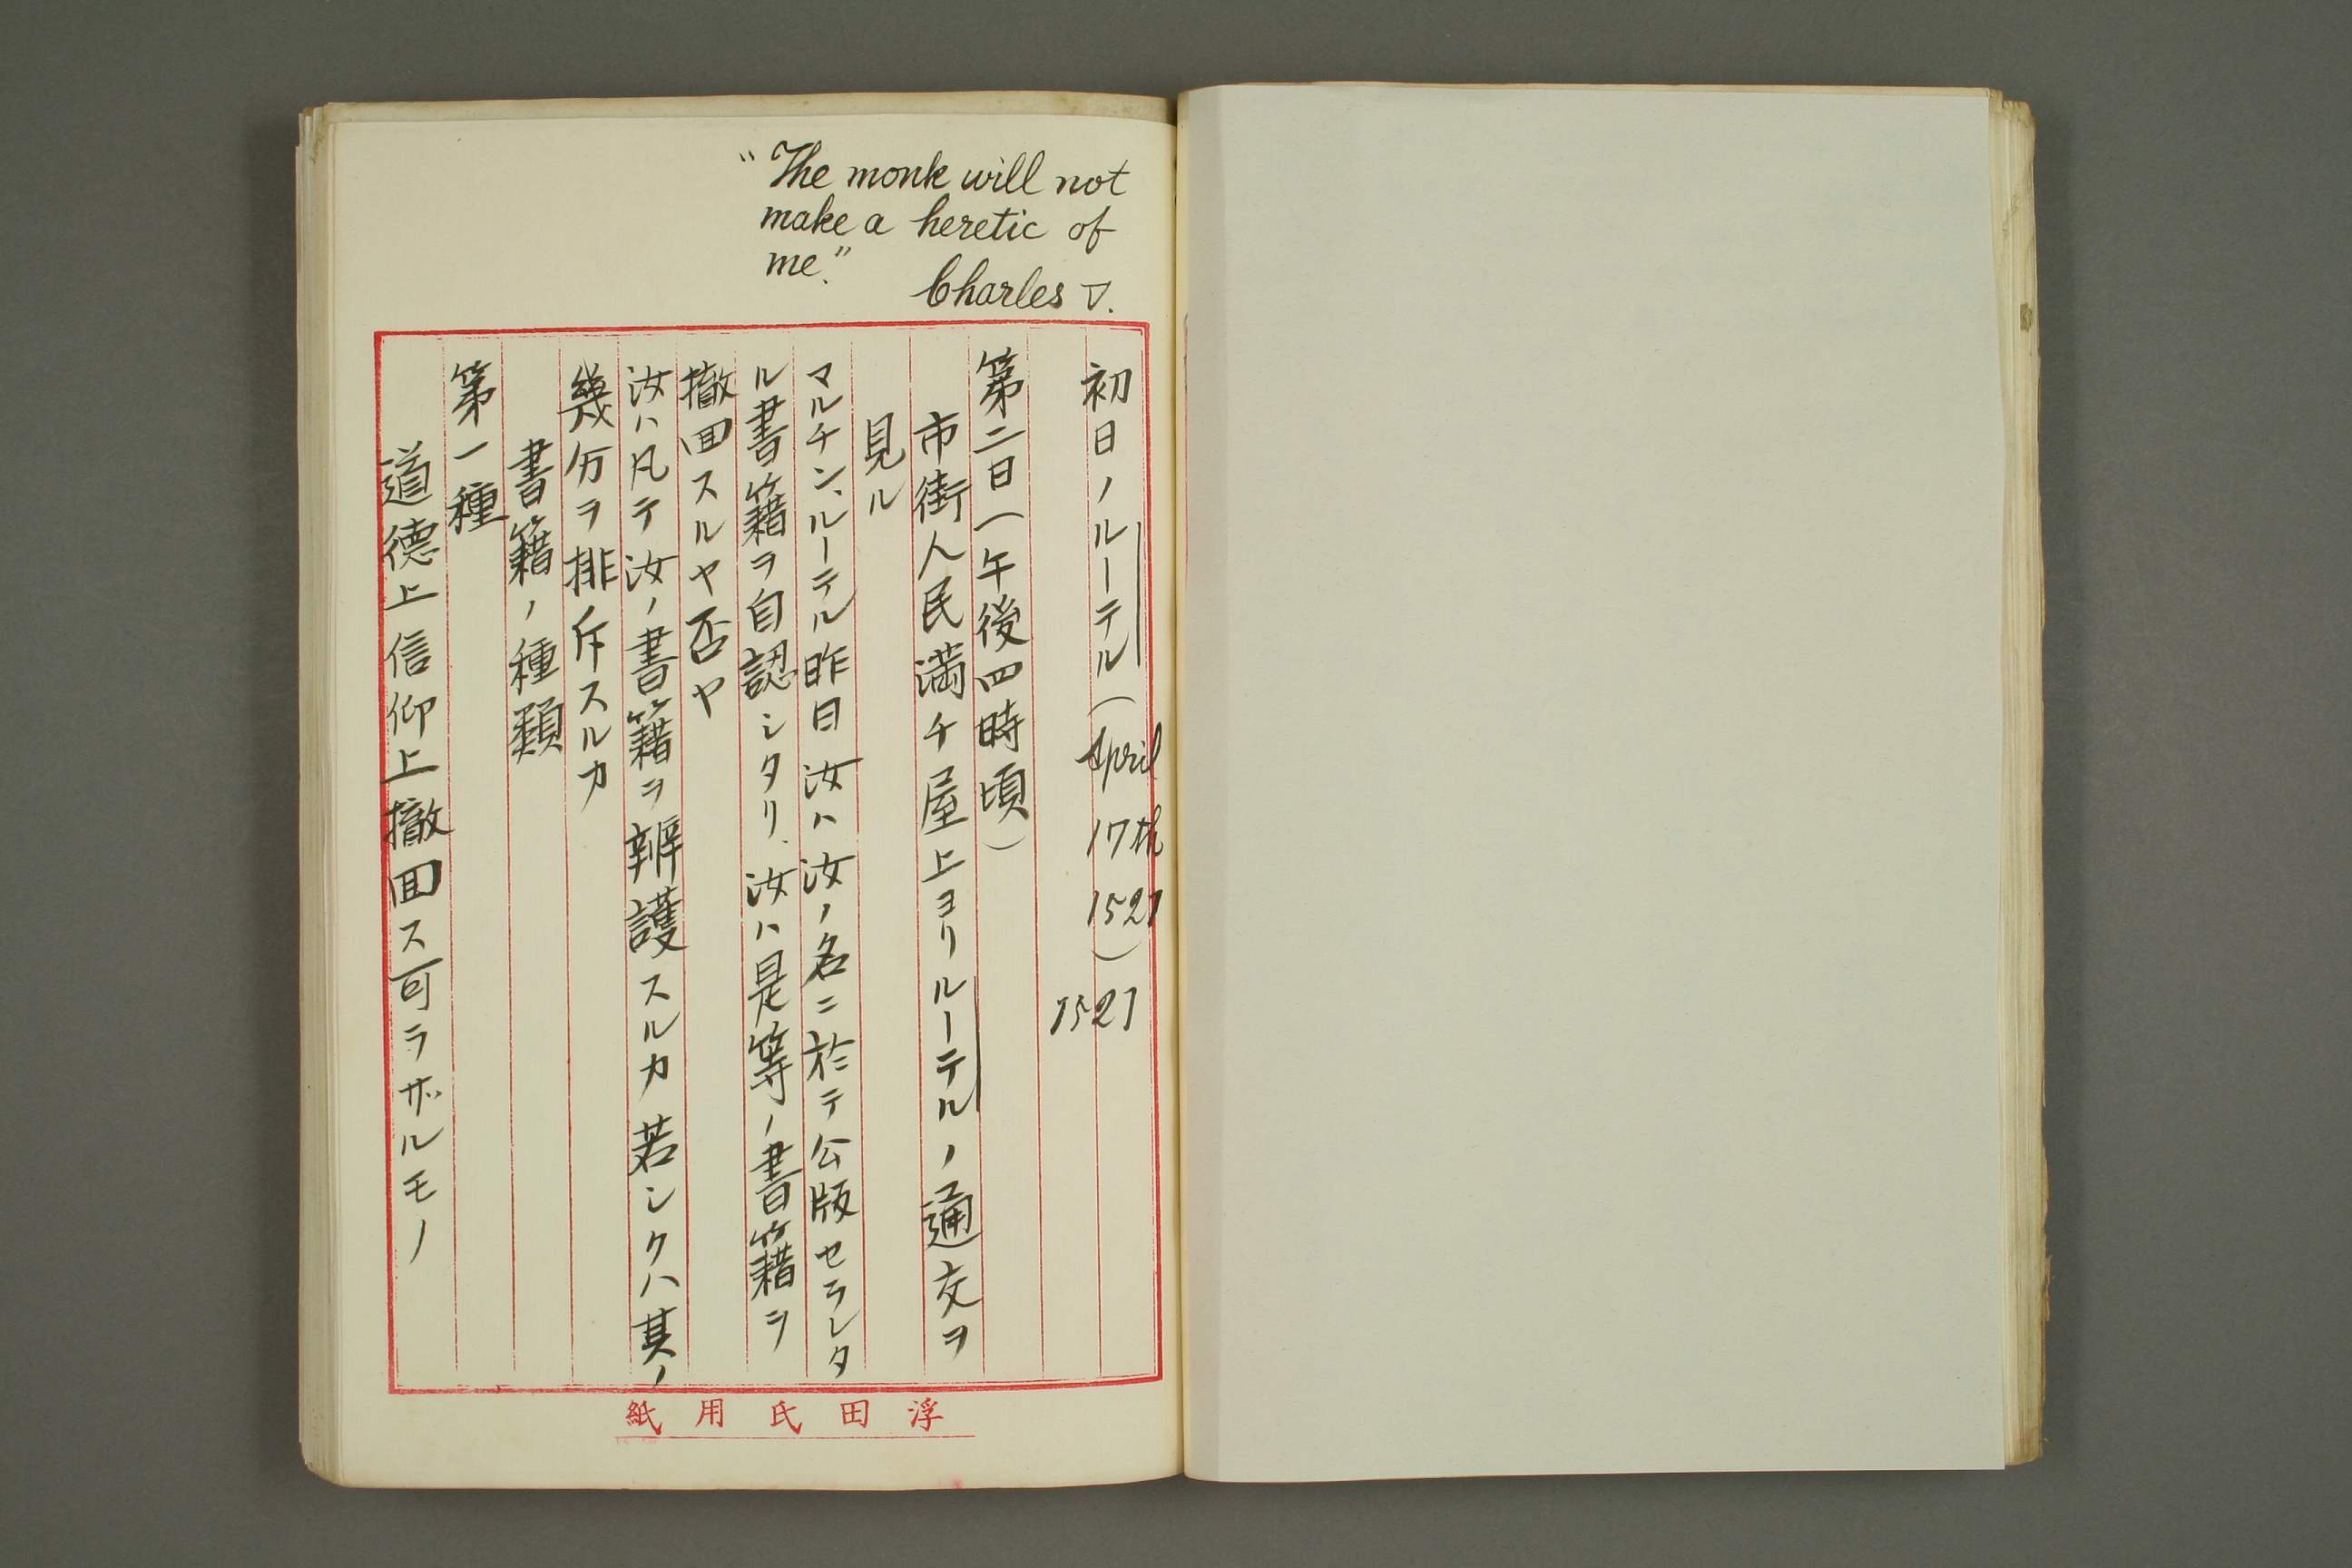 "The monk will not
make a heretic of
me."
Charles V.
初日ノルーテル(April 17th 1521)
1521
第二日(午後四時頃)
市街人民満チ屋上ヨリルーテルノ通交ヲ
見ル
マルチン、ルーテル昨日汝ハ汝ノ名ニ於テ公版セラレタ
ル書籍ヲ自認シタリ、汝ハ是等ノ書籍ヲ
撤回スルヤ否ヤ
汝ハ凡テ汝ノ書籍ヲ辨護スルカ若シクハ其ノ
幾分ヲ排斥スルカ
書籍ノ種類
第一種
道德上信仰上撤回ス可ラザルモノ
浮田氏用紙